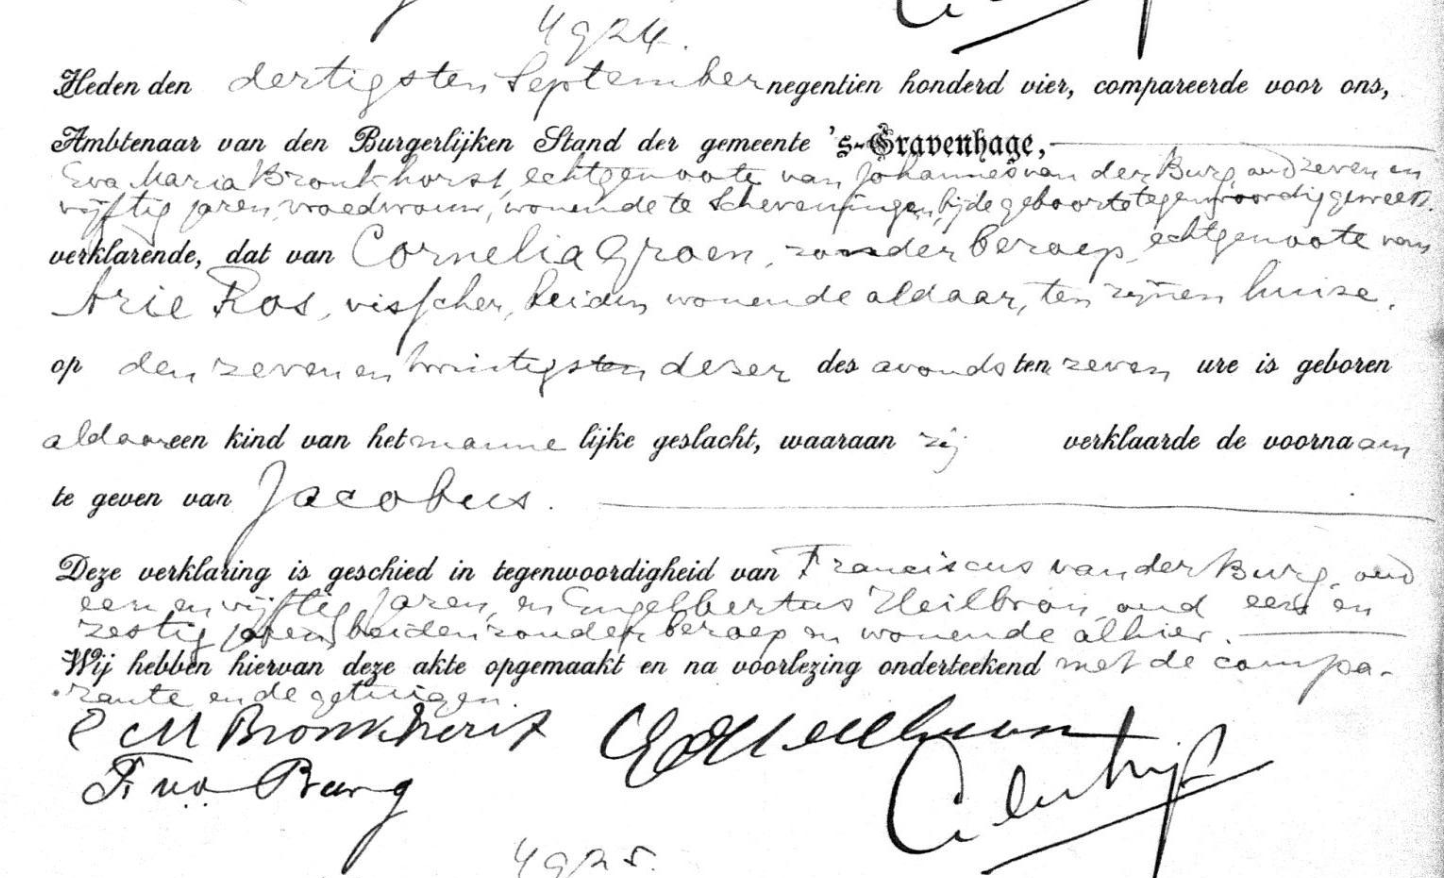 4924.
Heden den dertigsten September negentien honderd vier, compareerde voor ons,
Ambtenaar van den Burgerlijken Stand der gemeente 's-Gravenhage,
Eva Maria Bronkhorst, echtgenoote van Johannes van der Burg, oud zeven en
vijftig jaren, vroedvrouw, wonende te Scheveningen, bij de geboorte tegenwoordig geweest.
verklarende, dat van Cornelia Groen, zonder beroep, echtgenoote van
Arie Ros, visscher, beiden wonende aldaar, ten zijnen huize,
op den zeven en twintigsten dezer des avonds ten zeven ure is geboren
aldaar een kind van het mannelijke geslacht, waaraan zij verklaarde de voornaam
te geven van Jacobus.
Deze verklaring is geschied in tegenwoordigheid van Franciscus van der Burg, oud
een en vijftig jaren, en Engelbertus Heilbron, oud een en
zestig jaren, beiden zonder beroep en wonende alhier.
Wij hebben hiervan deze akte opgemaakt en na voorlezing onderteekend met de compa-
rante en de getuigen.
E M Bronkhorst E Heilbron
F vd Burg
4925.